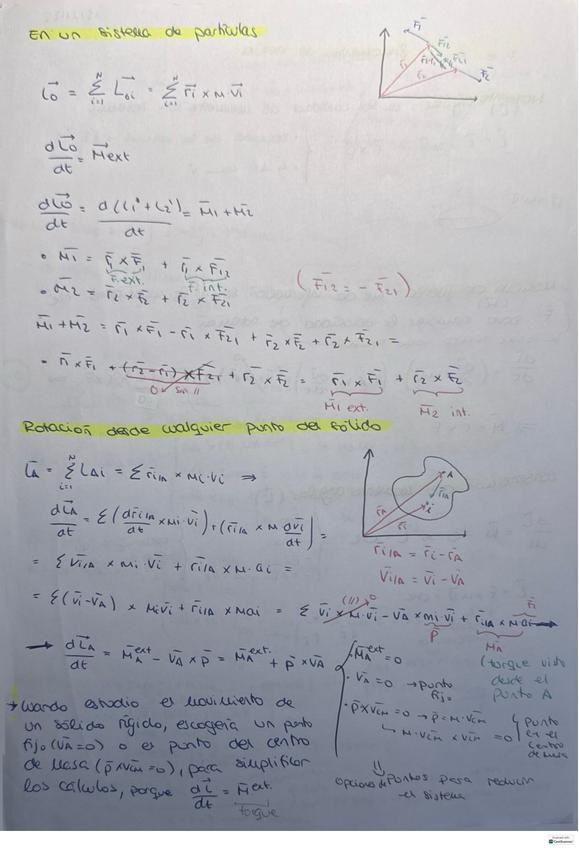 En un sistema de partículas
F̄₁
F̄₁₂
F̄₂₁
F̄₂
r̄₁
r̄₂
L⃗o = Σᵢ₌₁ᴺ L⃗oi = Σᵢ₌₁ᴺ r⃗i × m·v⃗i
dL⃗o/dt = M⃗ext
dL⃗o/dt = d(L₁ + L₂)/dt = M̄₁ + M̄₂
• M̄₁ = r̄₁ × F̄₁ + r̄₁ × F̄₁₂
F. ext. F. int.
(F̄₁₂ = - F̄₂₁)
• M̄₂ = r̄₂ × F̄₂ + r̄₂ × F̄₂₁
M̄₁ + M̄₂ = r̄₁ × F̄₁ - r̄₁ × F̄₂₁ + r̄₂ × F̄₂ + r̄₂ × F̄₂₁ =
= r̄₁ × F̄₁ + (r̄₂ - r̄₁) × F̄₂₁ + r̄₂ × F̄₂ = r̄₁ × F̄₁ + r̄₂ × F̄₂
0 son // M₁ ext. M₂ int.
Rotación desde cualquier punto del sólido
L̄A = Σᵢ₌₁ᴺ LAi = Σ r̄i/A × mi·vi ⇒
A
r̄i/A
i
r̄A
r̄i
dL̄A/dt = Σ (dr̄i/A/dt × mi·v̄i) + (r̄i/A × m dv̄i/dt) =
r̄i/A = r̄i - r̄A
= Σ v̄i/A × mi·v̄i + r̄i/A × m·ai =
V̄i/A = v̄i - v̄A
= Σ (v̄i - v̄A) × mi v̄i + r̄i/A × mai = Σ v̄i × m·v̄i - v̄A × mi·v̄i + r̄i/A × mai
(//) 0
P̄
F̄i
M̄A
(torque visto
desde el
punto A
→ dL̄A/dt = M̄A^ext - v̄A × p̄ = M̄A^ext. + p̄ × v̄A
· M̄A^ext = 0
· V̄A = 0 → punto fijo
· p̄ × v̄cm = 0 → p̄ = m·v̄cm
↳ m·v̄cm × v̄cm = 0
punto
en el
centro
de masa
⇓
opciones de puntos para reducir
el sistema
→ Cuando estudio el movimiento de
un sólido rígido, escogería un punto
fijo (v̄A = 0) o el punto del centro
de masa (p̄ × v̄cm = 0), para simplificar
los cálculos, porque dL̄/dt = M̄ext.
torque
CamScanner